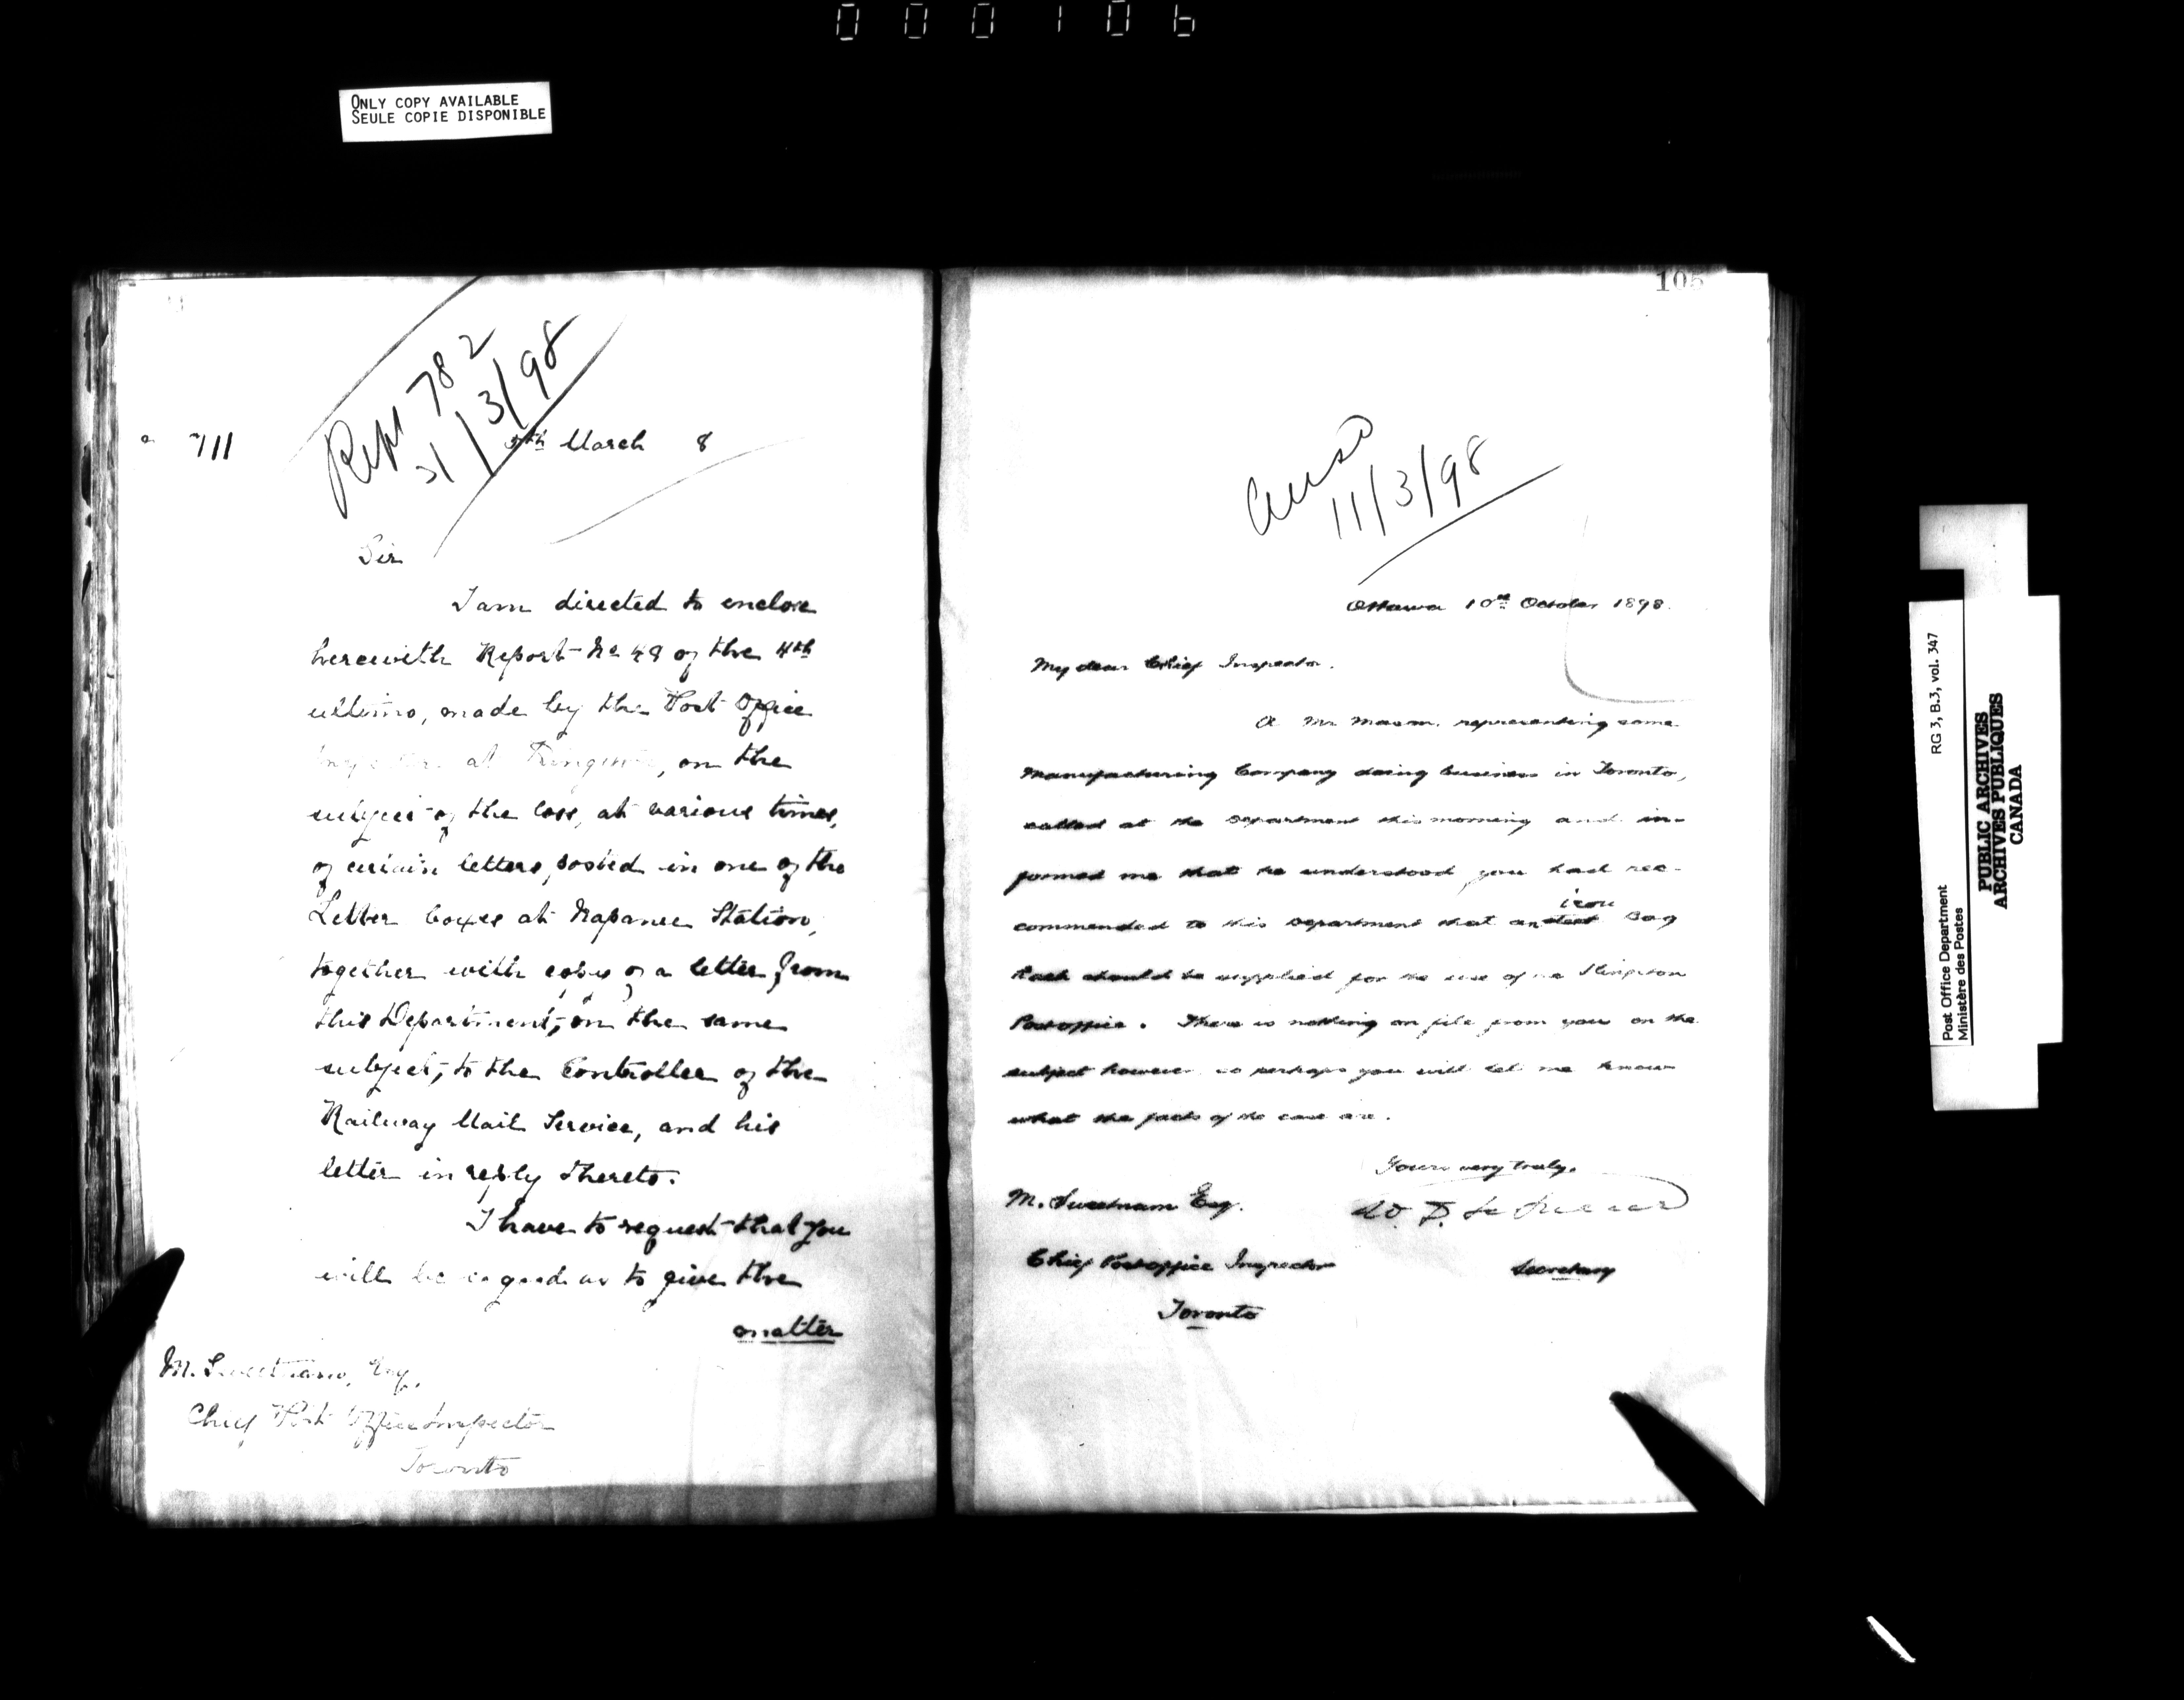 000106
ONLY COPY AVAILABLE
SEULE COPIE DISPONIBLE
711
Rept 782
31/3/98
9th March 8
Sir
I am directed to enclose
herewith Report No 48 of the 4th
ultimo, made by the Post Office
Inspector at Kingston, on the
subject of the loss, at various times,
of certain letters, posted in one of the
Letter boxes at Napanee Station,
together with copy of a letter from
this Department, on the same
subject, to the Controller of the
Railway Mail Service, and his
letter in reply thereto.
I have to request that you
will be so good as to give the
matter
M. Sweetnam, Esq,
Chief Post Office Inspector
Toronto
105
Ansd
11/3/98
Ottawa 10th October 1898.
My dear Chief Inspector.
A Mr Mason, representing some
Manufacturing Company doing business in Toronto,
called at the Department this morning and in-
formed me that he understood you had rec-
iron
commended to this Department that an steel Bag
Rack should be supplied for the use of the Kingston
Postoffice. There is nothing on file from you on the
subject however so perhaps you will let me know
what the facts of the case are.
Yours very truly,
M. Sweetnam Esq. W. D. LeSueur
Chief Postoffice Inspector Secretary
Toronto
Post Office Department RG 3, B.3, vol. 347
Ministère des Postes
PUBLIC ARCHIVES
ARCHIVES PUBLIQUES
CANADA